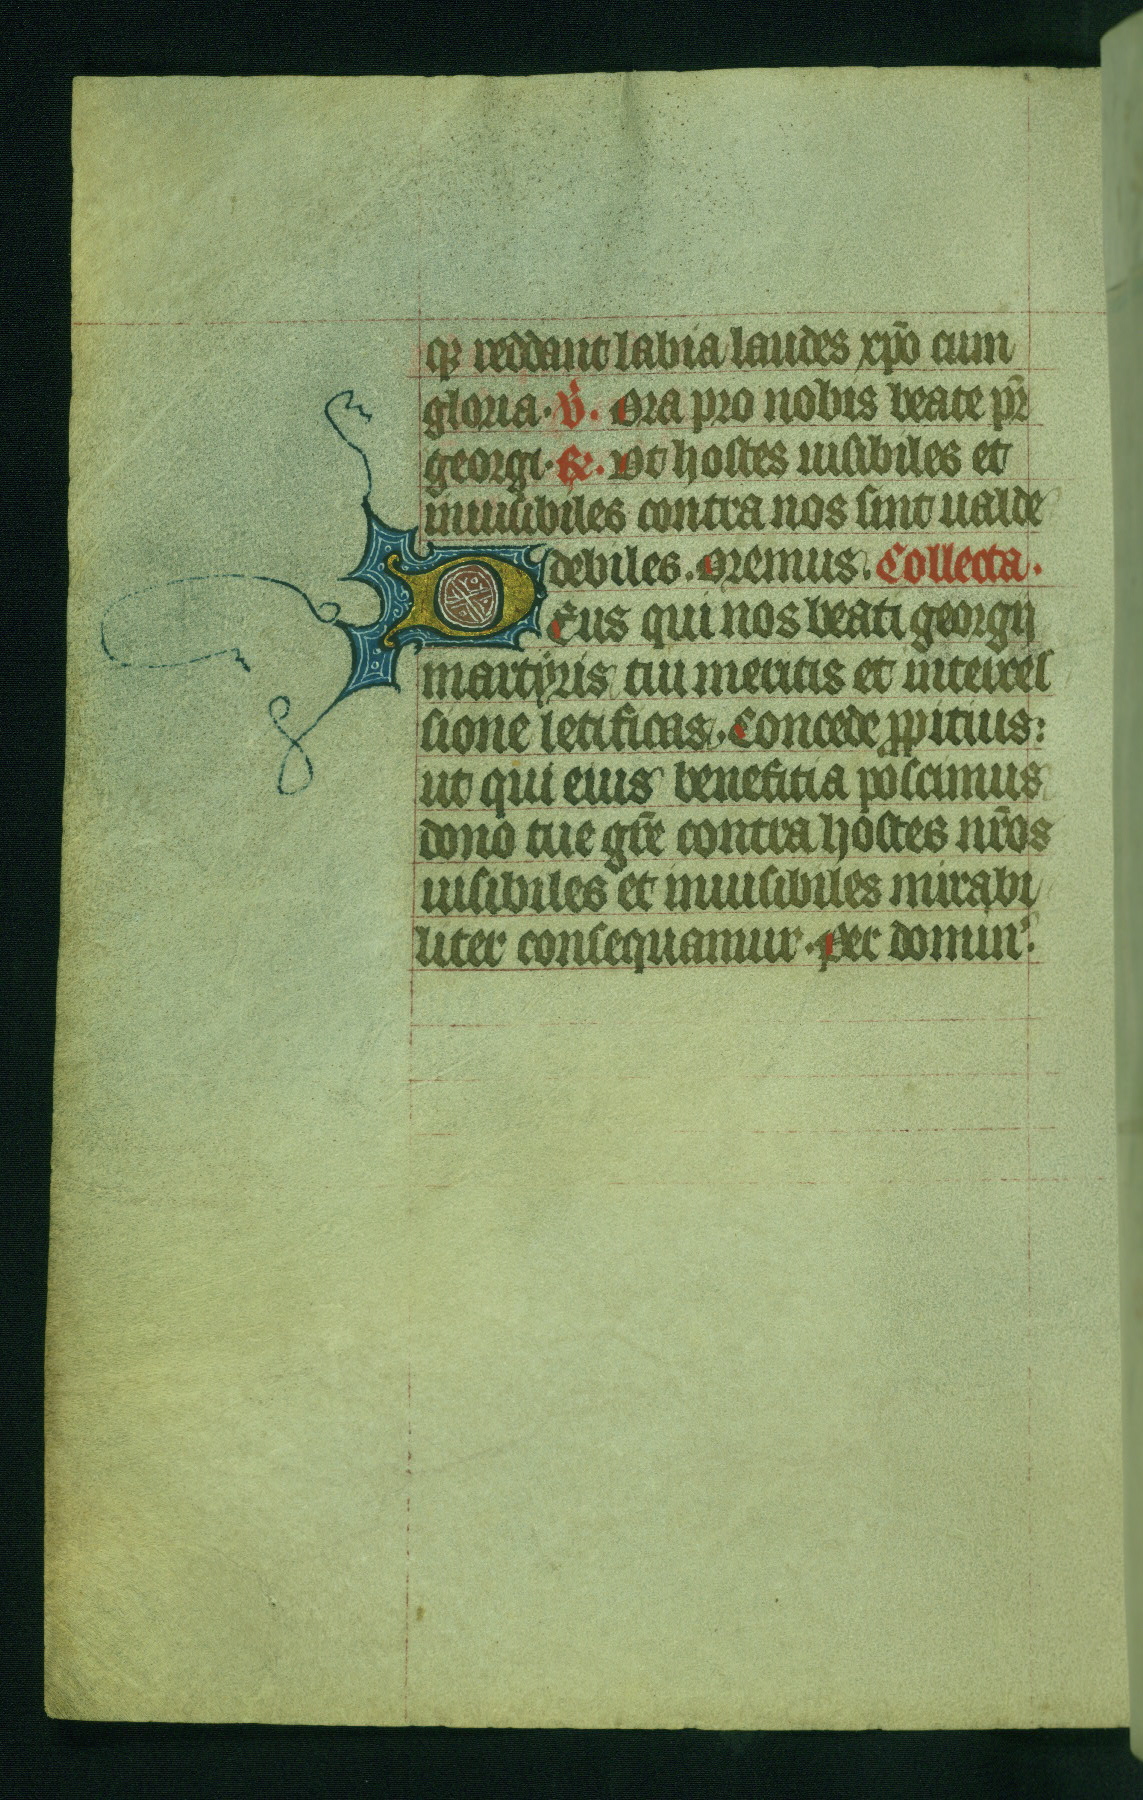 qꝫ reddant labia laudes xp̄o cum
gloria. V̓. Ora pro nobis beate pr̄
georgi. R̓. Vt hostes uisibiles et
inuisibiles contra nos sint ualde
debiles. Oremus. Collecta.
DEus qui nos beati georgij
martyris tui meritis et interces
sione letificas. Concede ꝓpitius:
ut qui eius benefitia poscimus
dono tue gr̄e contra hostes nr̄os
uisibiles et inuisibiles mirabi
liter consequamur. Per domin̓.